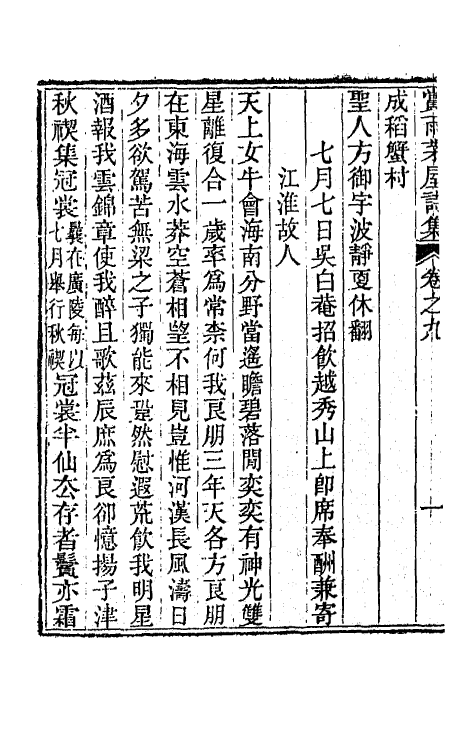 賞雨茅屋詩集 卷之九 一
成稻蟹村
聖人方御宇波靜夏休翻
七月七日吳白菴招飲越秀山上卽席奉酬兼寄
江淮故人
天上女牛會海南分野當遙瞻碧落閒奕奕有神光雙
星離復合一歲率為常柰何我良朋三年天各方良朋
在東海雲水莽空蒼相望不相見豈惟河漢長風濤日
夕多欲駕苦無梁之子獨能來跫然慰遐荒飲我明星
酒報我雲錦章使我醉且歌茲辰庶為良卻憶揚子津
秋禊集冠裳曩在廣陵每以七月舉行秋禊冠裳半仙厺存者鬢亦霜